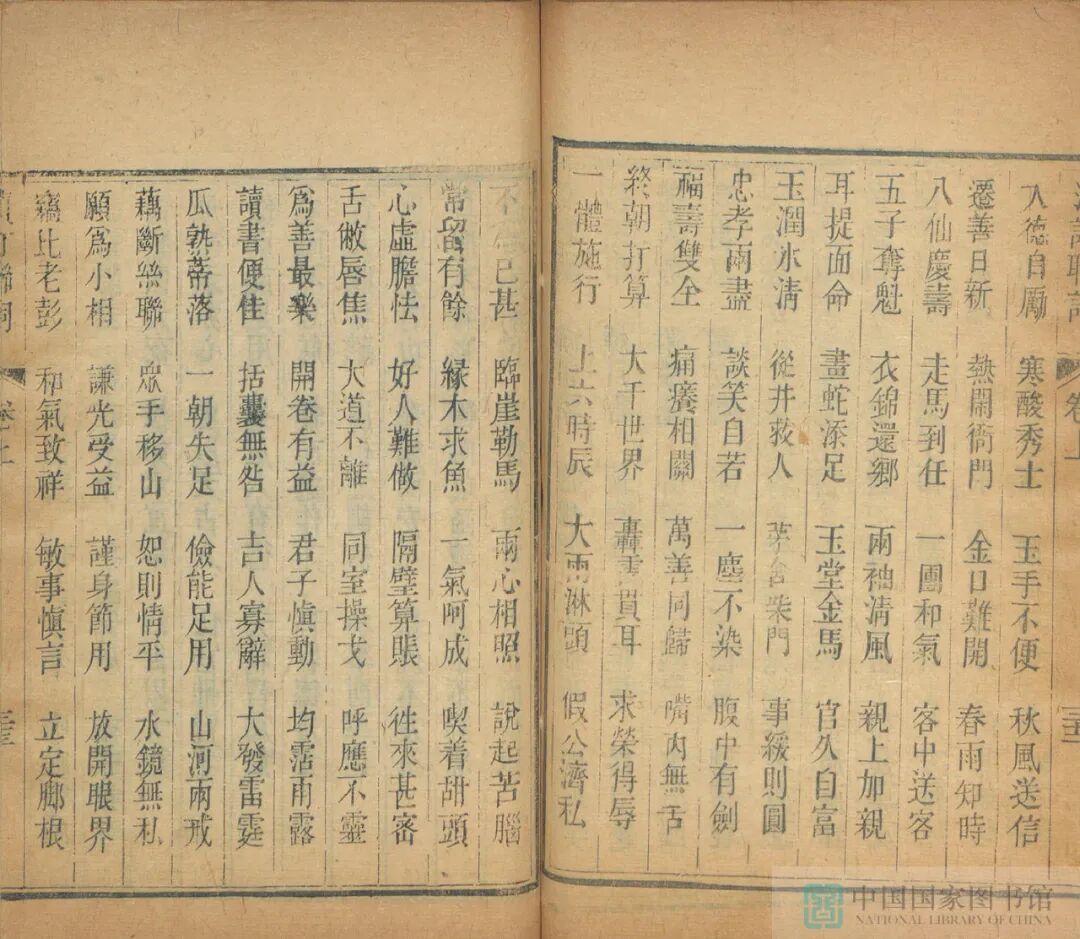 卷上
入德自勵 寒酸秀士 玉手不便 秋風送信
遷善日新 熱閙衙門 金口難開 春雨知時
八仙慶壽 走馬到任 一團和氣 客中送客
五子奪魁 衣錦還鄉 兩袖淸風 親上加親
耳提面命 畫蛇添足 玉堂金馬 官久自富
玉潤氷淸 從井救人 茅舍柴門 事緩則圓
忠孝兩盡 談笑自若 一塵不染 腹中有劍
福壽雙全 痛癢相關 萬善同歸 嘴內無舌
終朝打算 大千世界 轟雷貫耳 求榮得辱
一體施行 上六時辰 大雨淋頭 假公濟私
不爲已甚 臨崖勒馬 兩心相照 說起苦腦
常留有餘 緣木求魚 一氣呵成 喫着甜頭
心虛膽怯 好人難做 隔壁算賬 徃來甚密
舌敝唇焦 大道不離 同室操戈 呼應不靈
爲善最樂 開卷有益 君子愼動 均霑雨露
讀書便佳 括囊無咎 吉人寡辭 大發雷霆
瓜熟蒂落 一朝失足 儉能足用 山河兩戒
藕斷絲聯 衆手移山 恕則情平 水鏡無私
願爲小相 謙光受益 謹身節用 放開眼界
竊比老彭 和氣致祥 敏事愼言 立定脚根
卷上
中国国家图书馆
NATIONAL LIBRARY OF CHINA